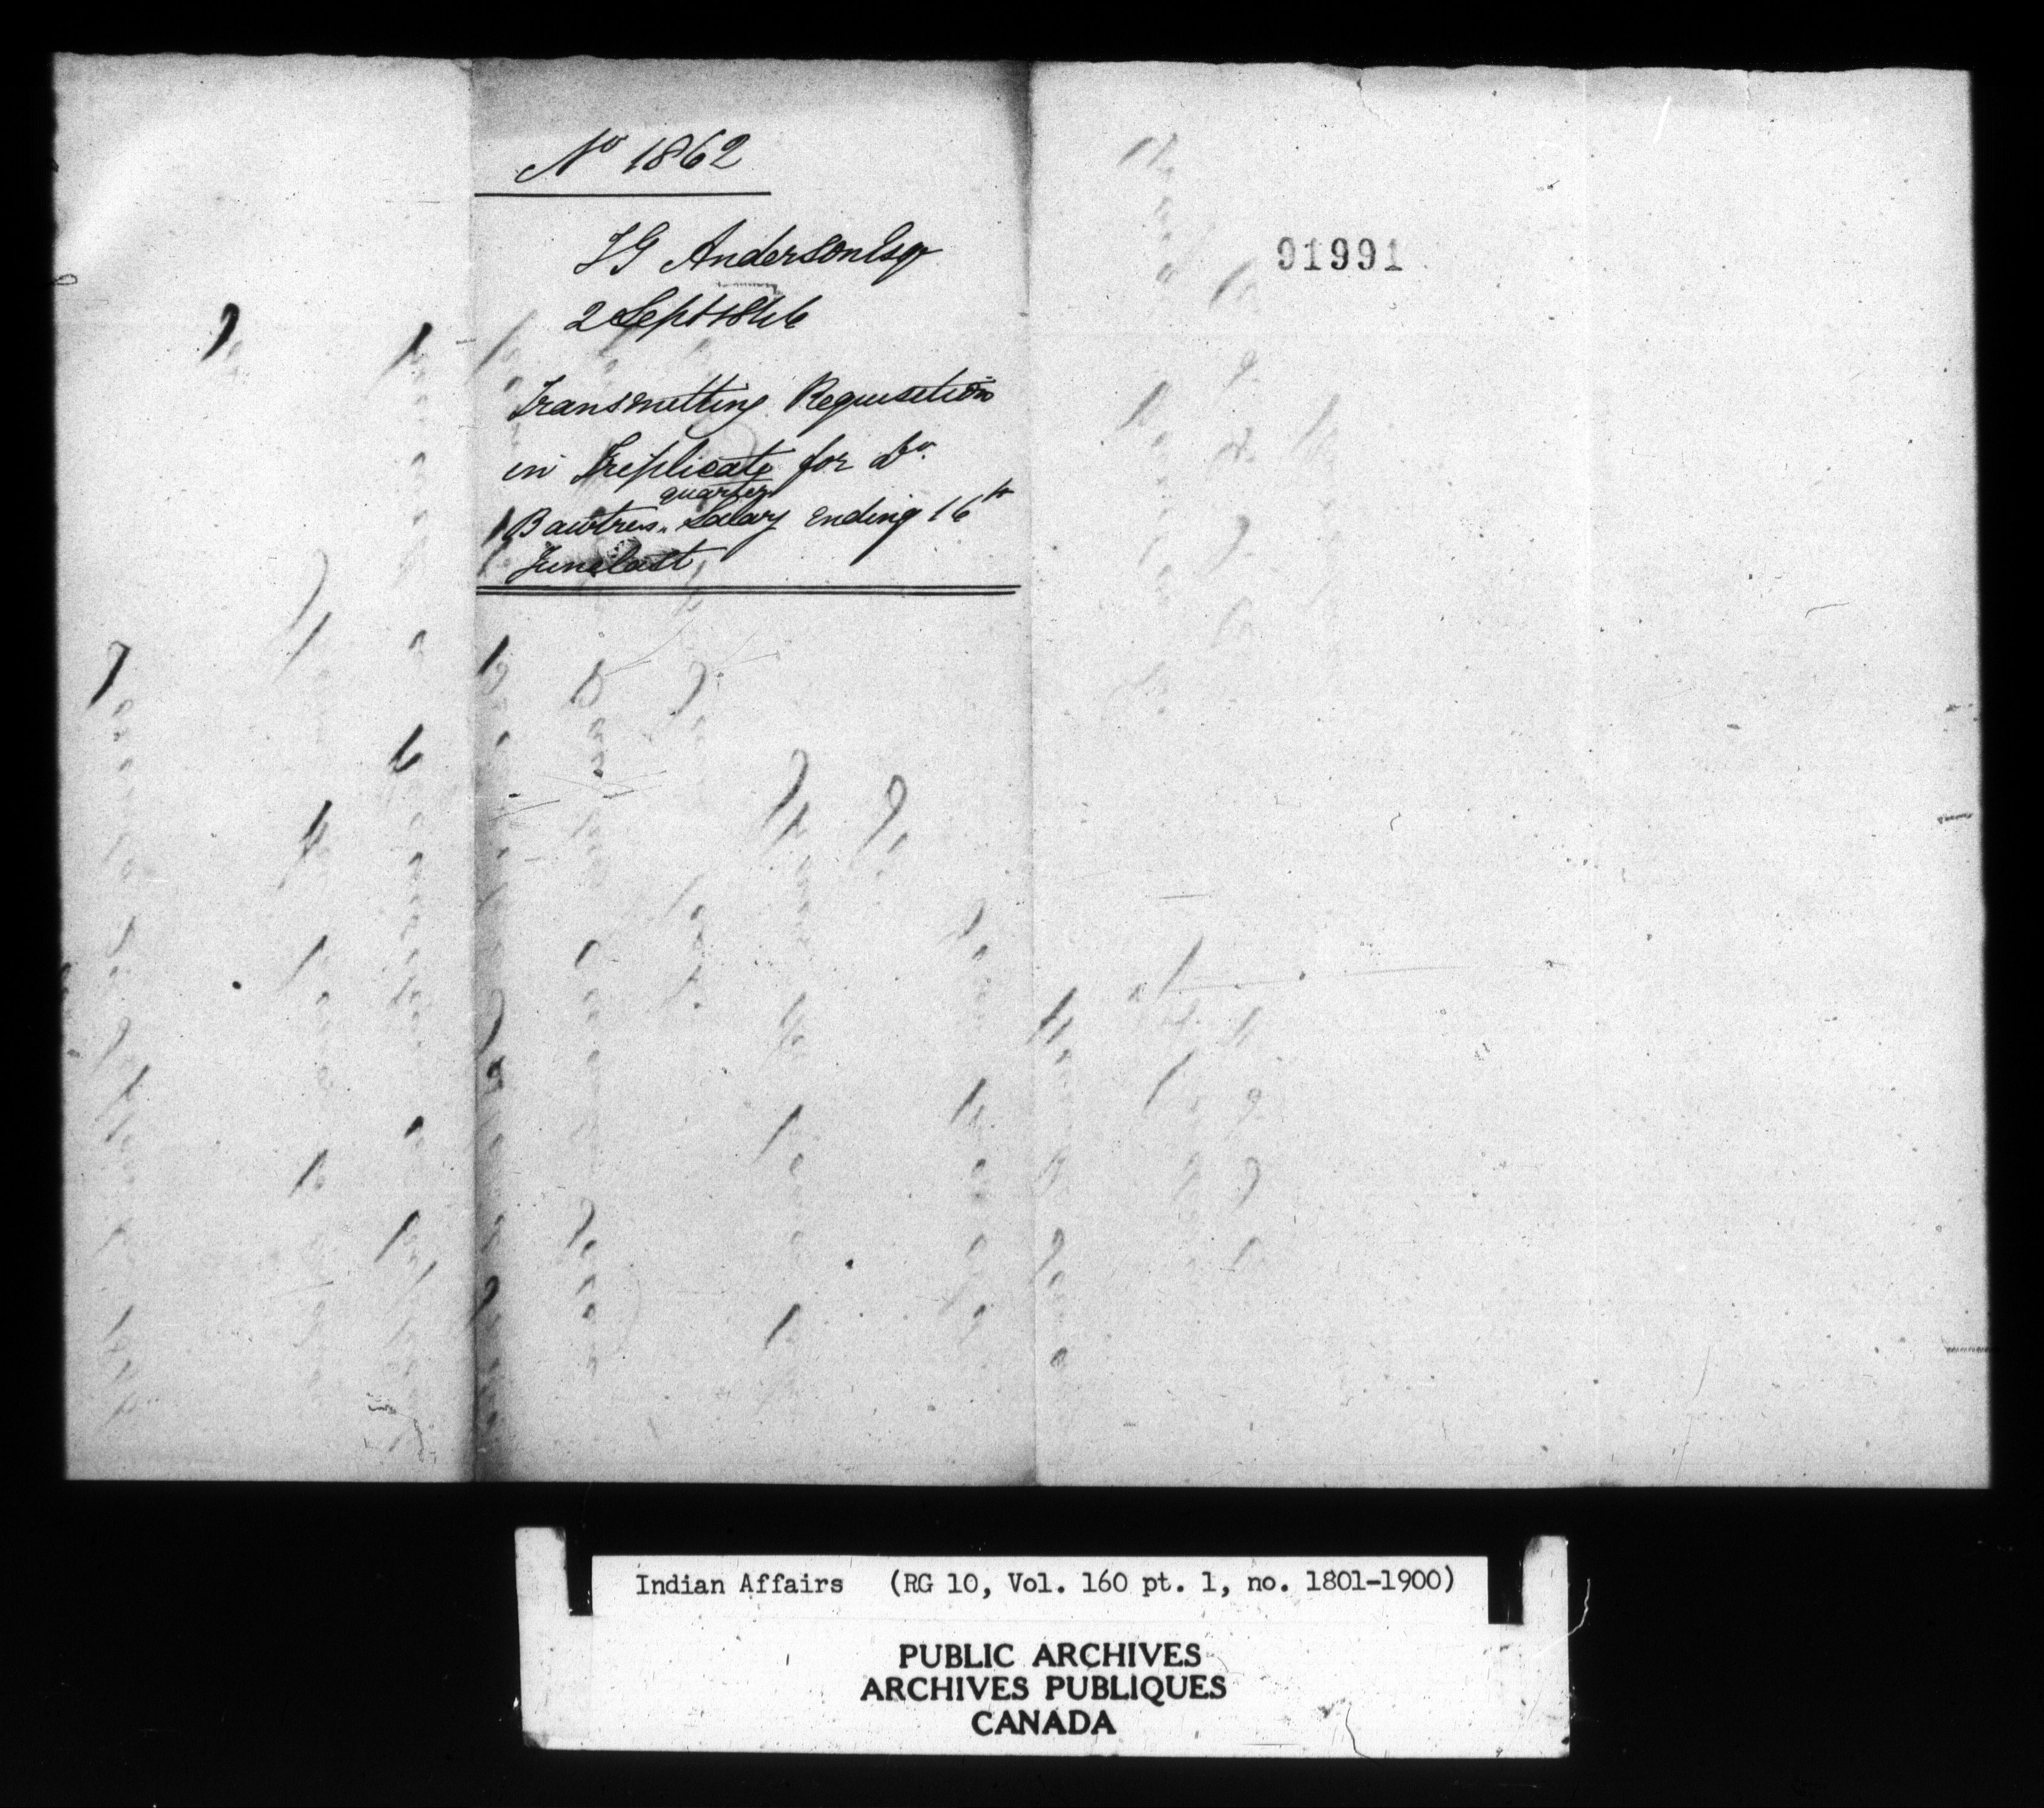 No 1862
TG Anderson Esqr
2 Sept 1846
Transmitting Requisition
in Treplicate for Dr.
quarter
Bawtres Salary ending 16th
June last
91991
Indian Affairs (RG 10, Vol. 160 pt. 1, no. 1801-1900)
PUBLIC ARCHIVES
ARCHIVES PUBLIQUES
CANADA